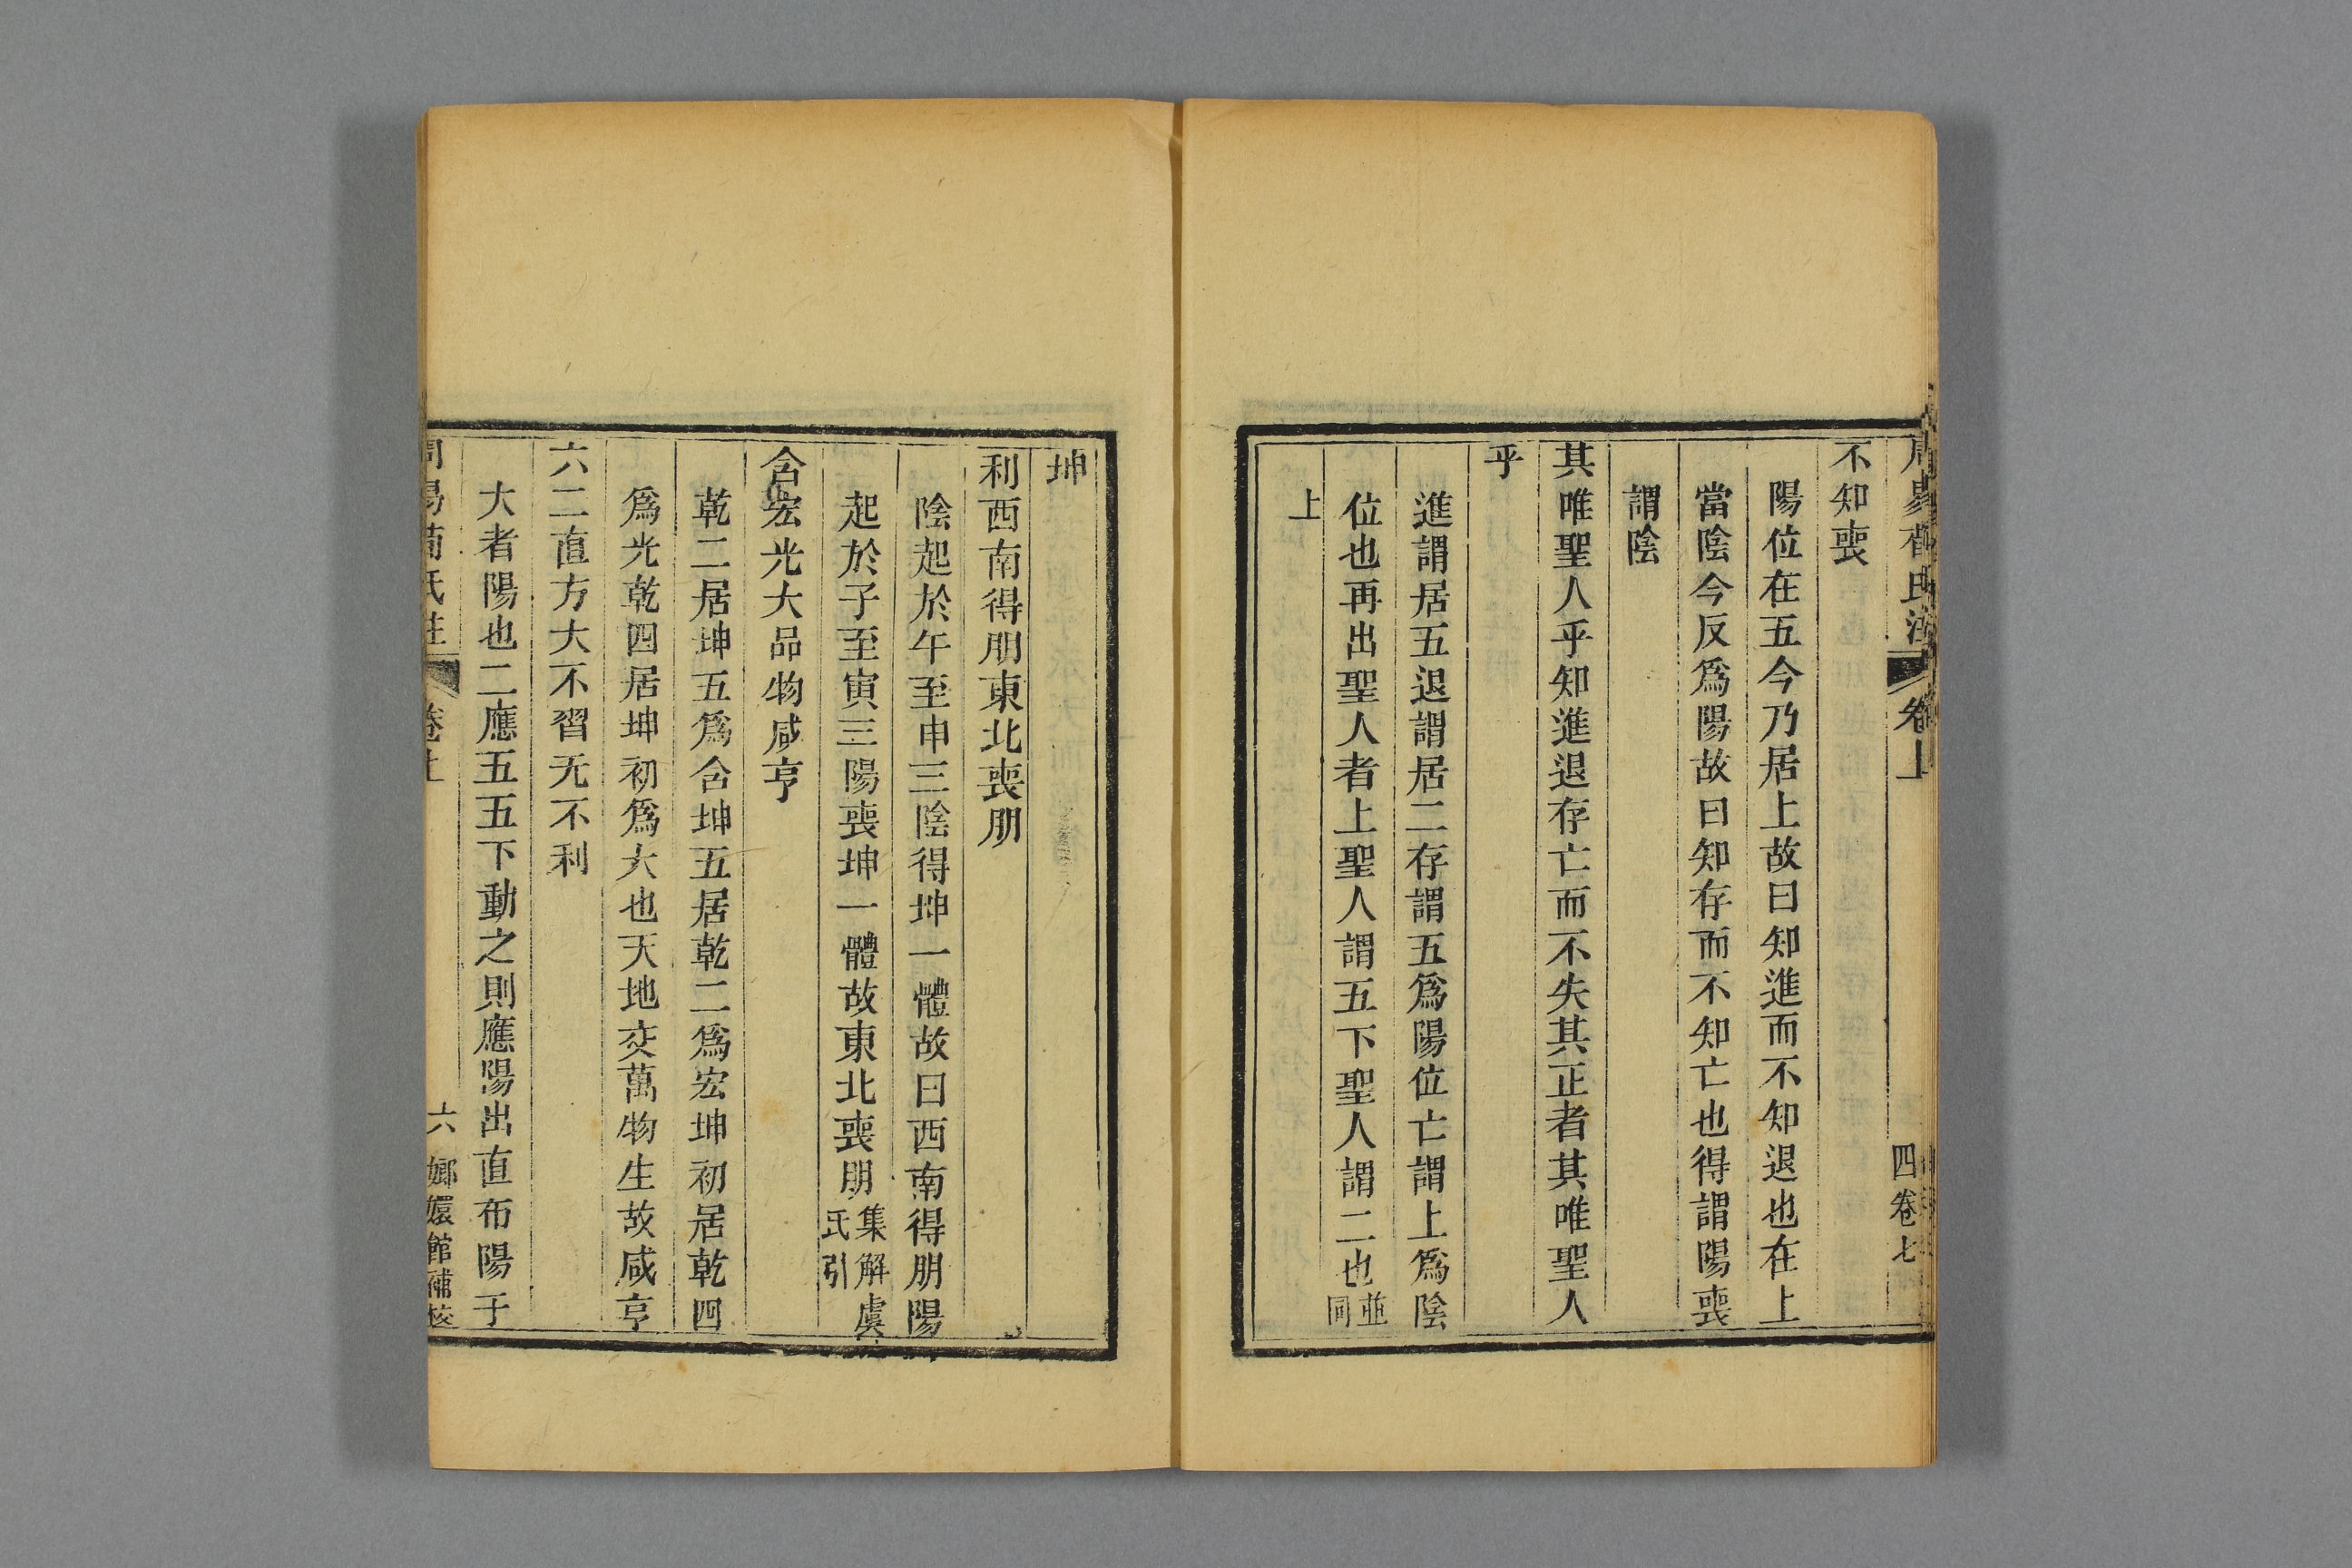 周易荀氏注 卷上 四卷七
不知喪
陽位在五今乃居上故曰知進而不知退也在上
當陰今反爲陽故曰知存而不知亡也得謂陽喪
謂陰
其唯聖人乎知進退存亡而不失其正者其唯聖人
乎
進謂居五退謂居二存謂五爲陽位亡謂上爲陰
位也再出聖人者上聖人謂五下聖人謂二也並同
上
坤
利西南得朋東北喪朋
陰起於午至申三陰得坤一體故曰西南得朋陽
起於子至寅三陽喪坤一體故東北喪朋集解虞氏引
含宏光大品物咸亨
乾二居坤五爲含坤五居乾二爲宏坤初居乾四
爲光乾四居坤初爲大也天地交萬物生故咸亨
六二直方大不習无不利
大者陽也二應五五下動之則應陽出直布陽于
周易荀氏注 卷上 六 嫏嬛館補校